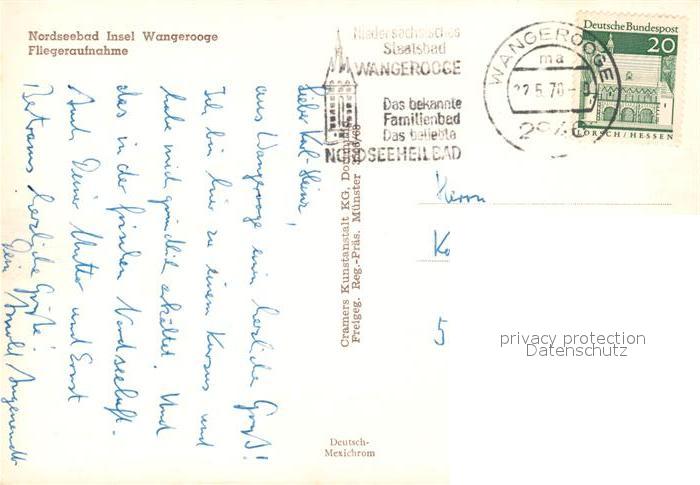 Nordseebad Insel Wangerooge
Fliegeraufnahme
Niedersächsisches
Staatsbad
WANGEROOGE
Das bekannte
Familienbad
Das beliebte
NORDSEEHEILBAD
WANGEROOGE
ma
22.5.70
Deutsche Bundespost
20
LORSCH/HESSEN
Lieber Karl-Heinz,
aus Wangerooge einen herzliche Grüß!
Ich bin hier zu einem Kursus und
habe mich gründlich erkältet. Und
das in der frischen Nordseeluft.
Auch Deiner Mutter und Ernst
Bertrams herzliche Grüße!
Dein Arnold Angenendt
Cramers Kunstanstalt KG. Dortmund
Freigeg. Reg.-Präs. Münster
Herrn
5
privacy protection
Datenschutz
Deutsch-
Mexichrom